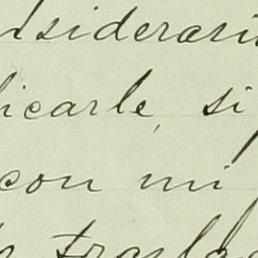 nsiderarin
licarle, si
con mi
traslad